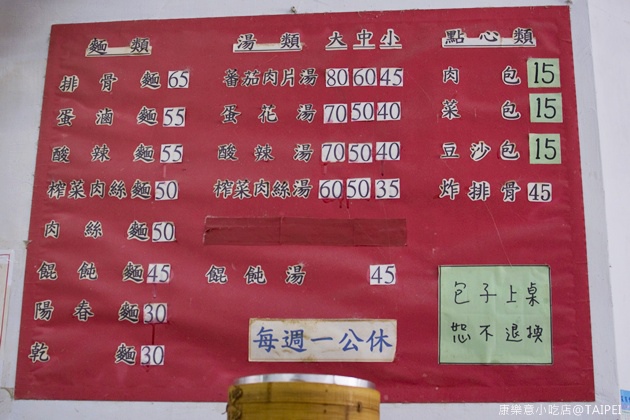 麵類
排骨麵65
蛋滷麵55
酸辣麵55
榨菜肉絲麵50
肉絲麵50
餛飩麵45
陽春麵30
乾麵30
湯類 大中小
蕃茄肉片湯 80 60 45
蛋花湯 70 50 40
酸辣湯 70 50 40
榨菜肉絲湯 60 50 35
餛飩湯 45
每週一公休
點心類
肉包 15
菜包 15
豆沙包 15
炸排骨 45
包子上桌
恕不退換
康樂意小吃店@TAIPEI